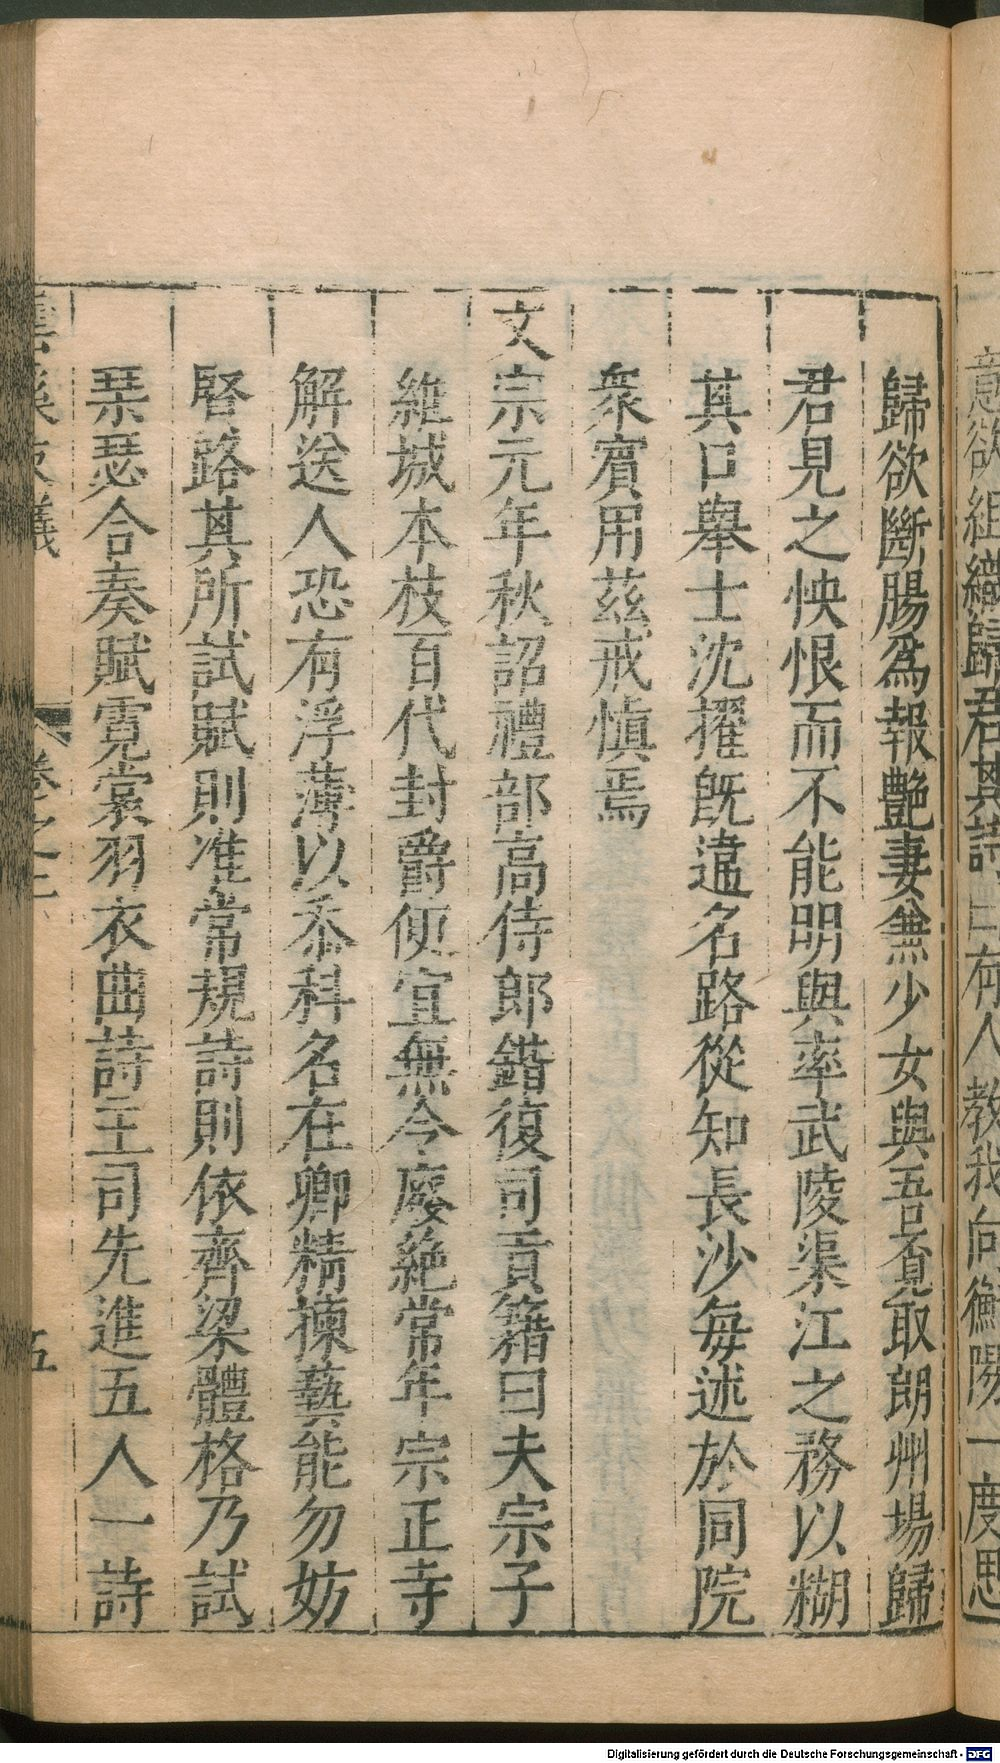 意欲組織歸君其詩曰有人教我向衡陽一度思
歸欲斷腸爲報艷妻兼少女與吾覔取朗州塲歸
君見之怏恨而不能明與率武陵渠江之務以糊
其口舉士沈擢旣違名路從知長沙每述於同院
衆賓用茲戒愼焉
文宗元年秋詔禮部高侍郎鍇復司貢籍曰夫宗子
維城本枝百代封爵便宜無令廢絶常年宗正寺
解送人恐有浮薄以忝科名在卿精揀藝能勿妨
啓路其所試賦則准常規詩則依齊梁體格乃試
琹瑟合奏賦霓裳羽衣曲詩主司先進五人一詩
雲溪友議 卷之上 五
Digitalisierung gefördert durch die Deutsche Forschungsgemeinschaft - DFG